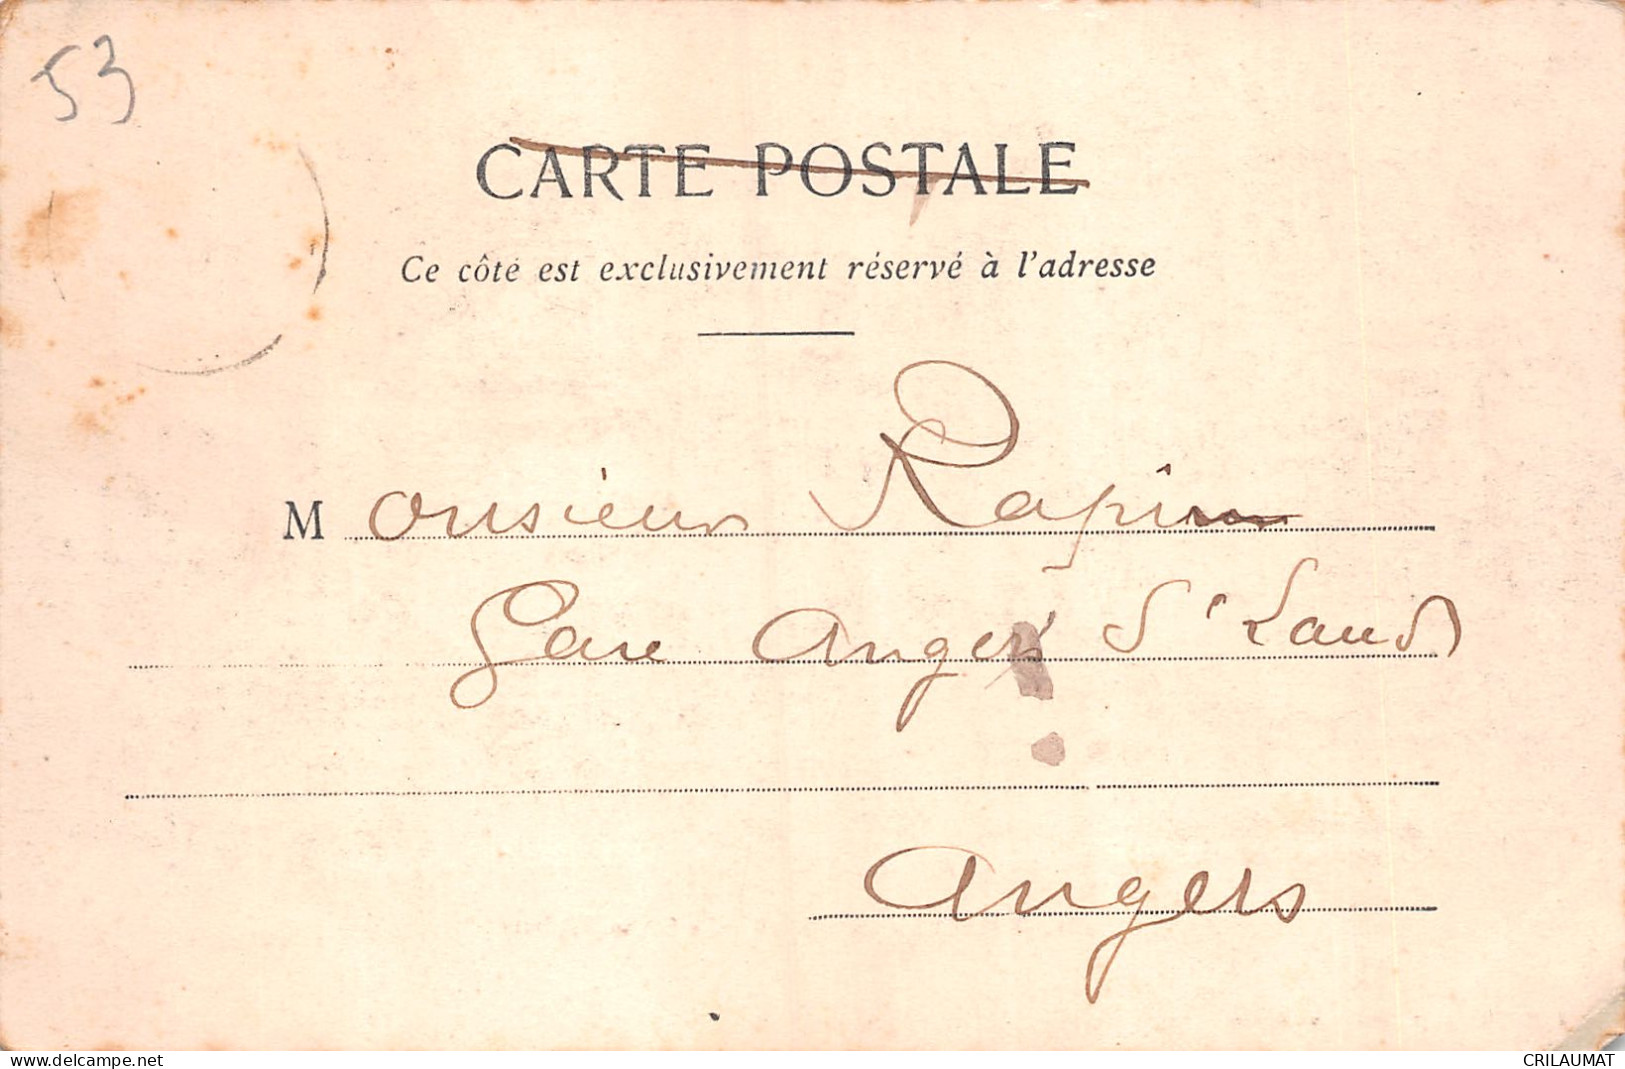 53
CARTE POSTALE
Ce côté est exclusivement réservé à l'adresse
Monsieur Rapin
Gare Angers St Laud
Angers
www.delcampe.net
CRILAUMAT